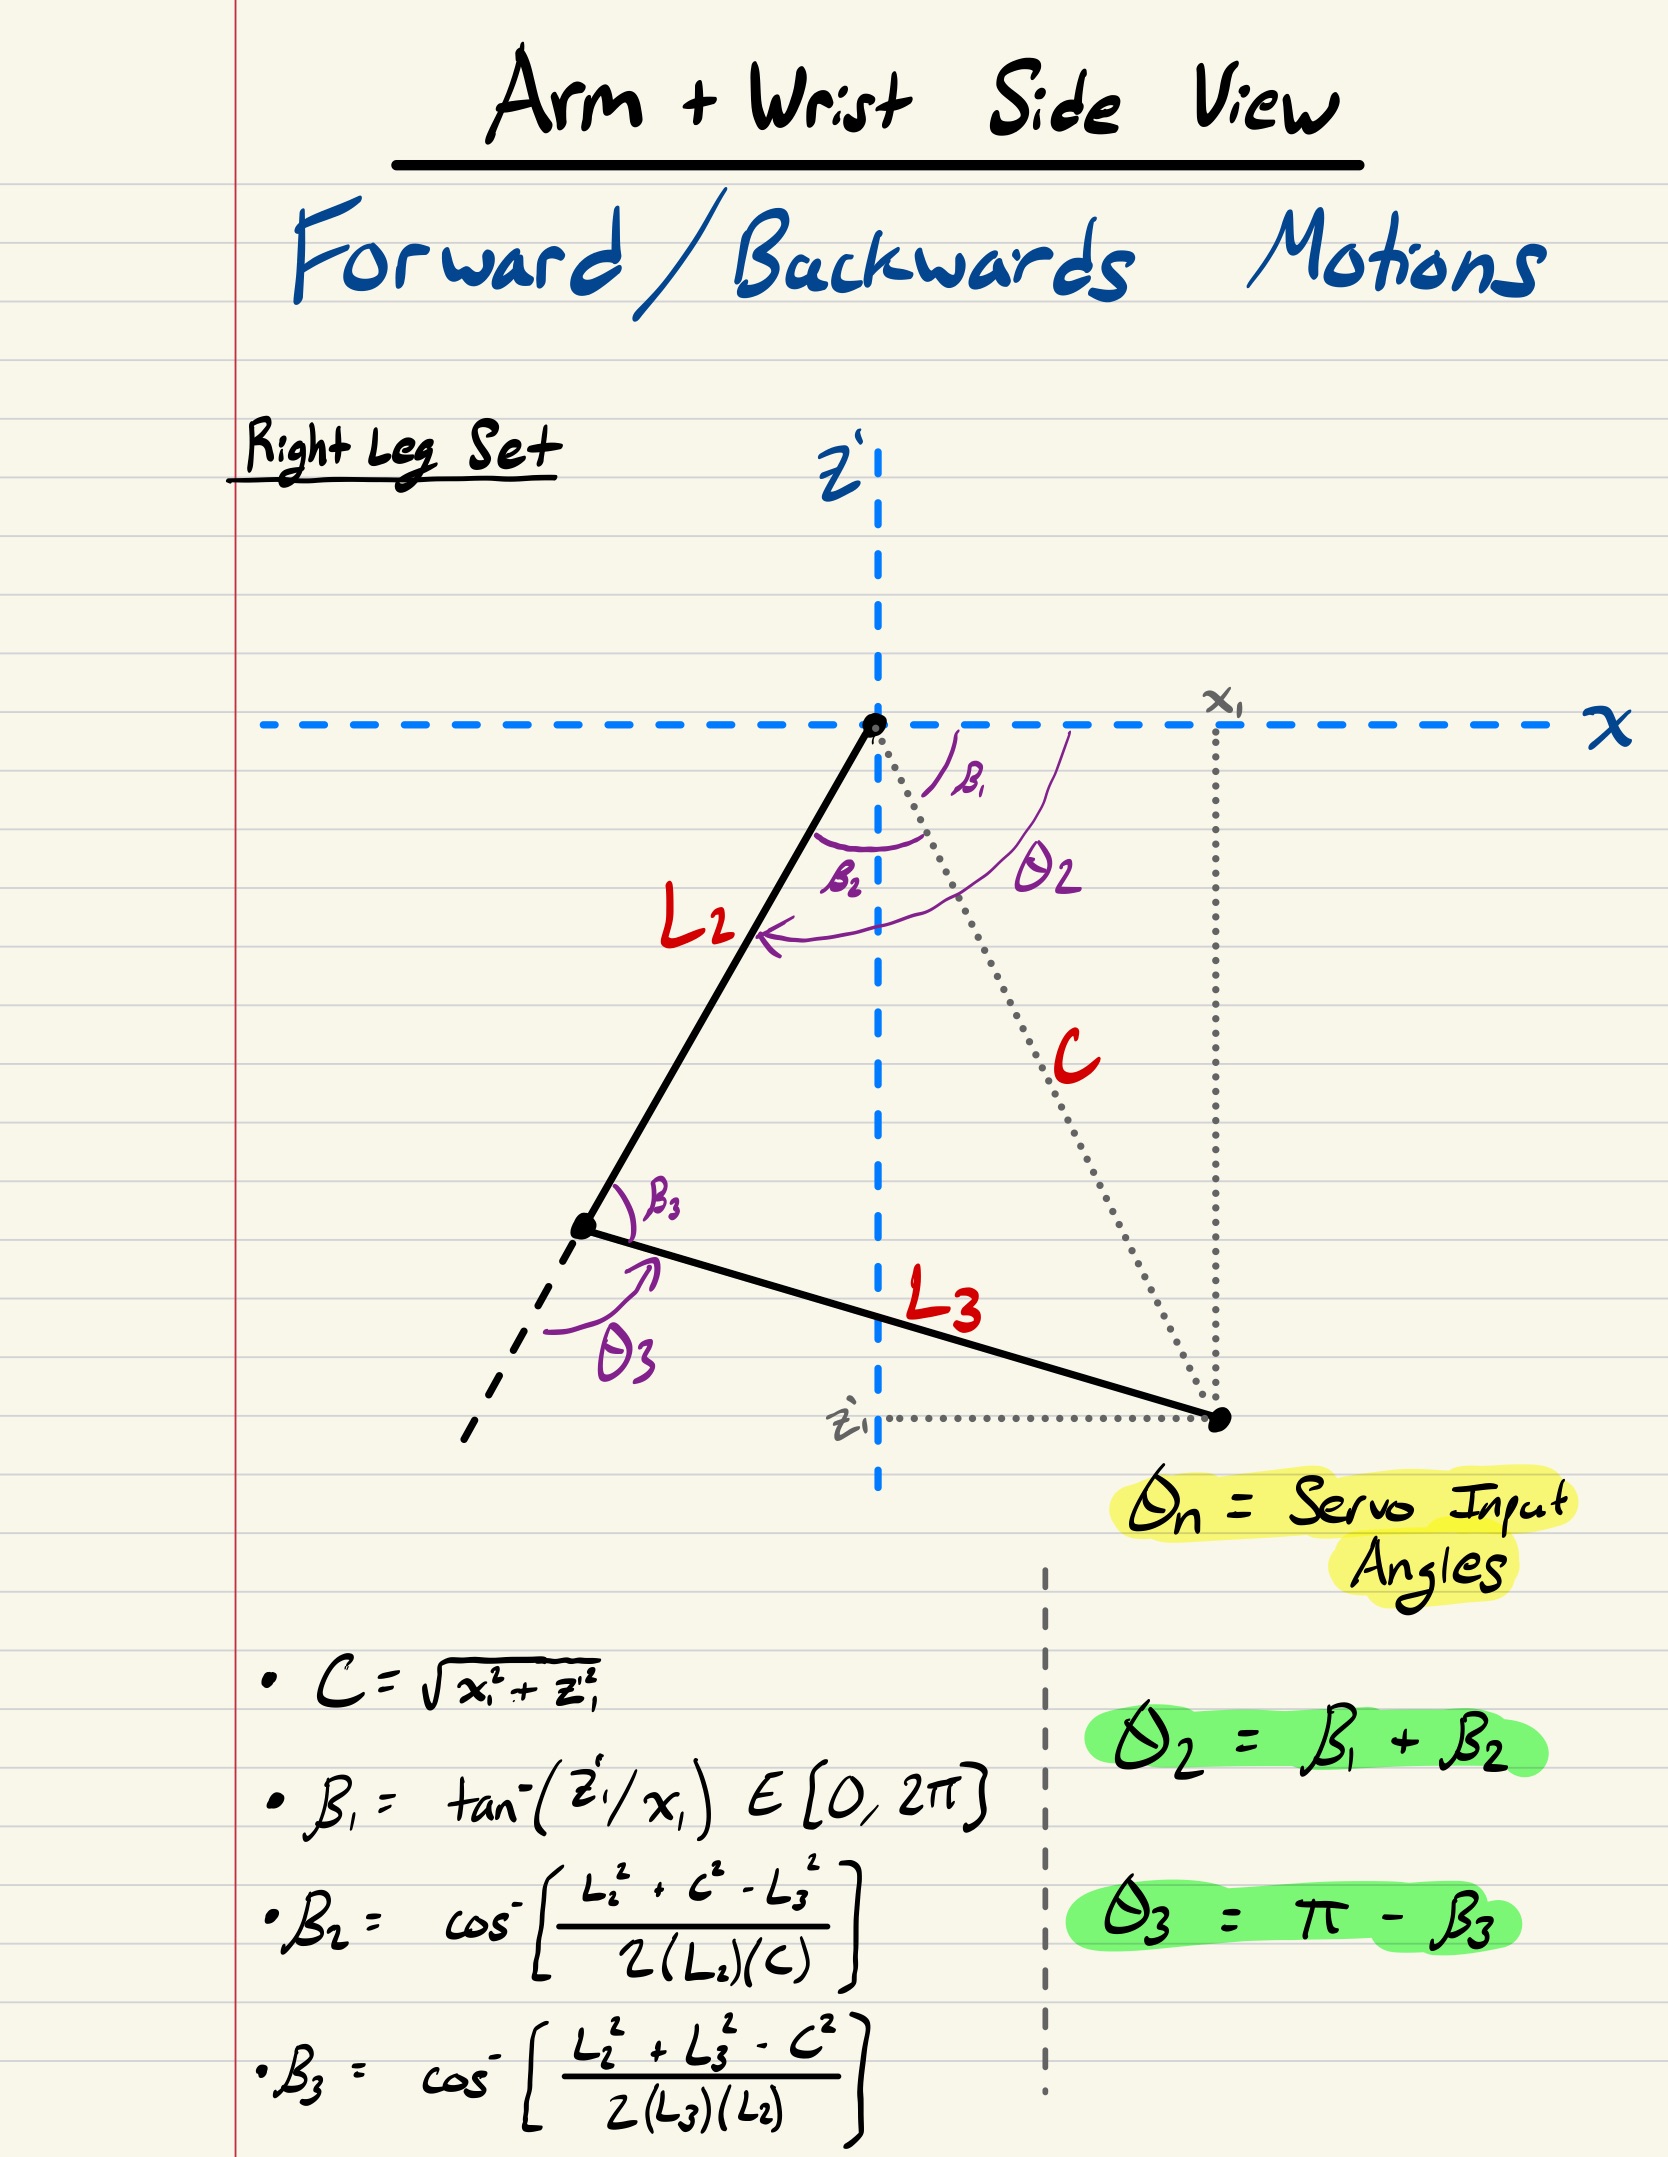 Arm + Wrist Side View
Forward/Backwards Motions
Right Leg Set
z'
x₁
x
β₁
β₂
θ₂
L₂
C
β₃
L₃
θ₃
z'₁
θn = Servo Input
Angles
• C = √(x₁² + z'₁²)
θ₂ = β₁ + β₂
• β₁ = tan⁻(z'₁/x₁) E [0, 2π]
• β₂ = cos⁻[(L₂² + C² - L₃²)/(2(L₂)(C))]
θ₃ = π - β₃
• β₃ = cos⁻[(L₂² + L₃² - C²)/(2(L₃)(L₂))]